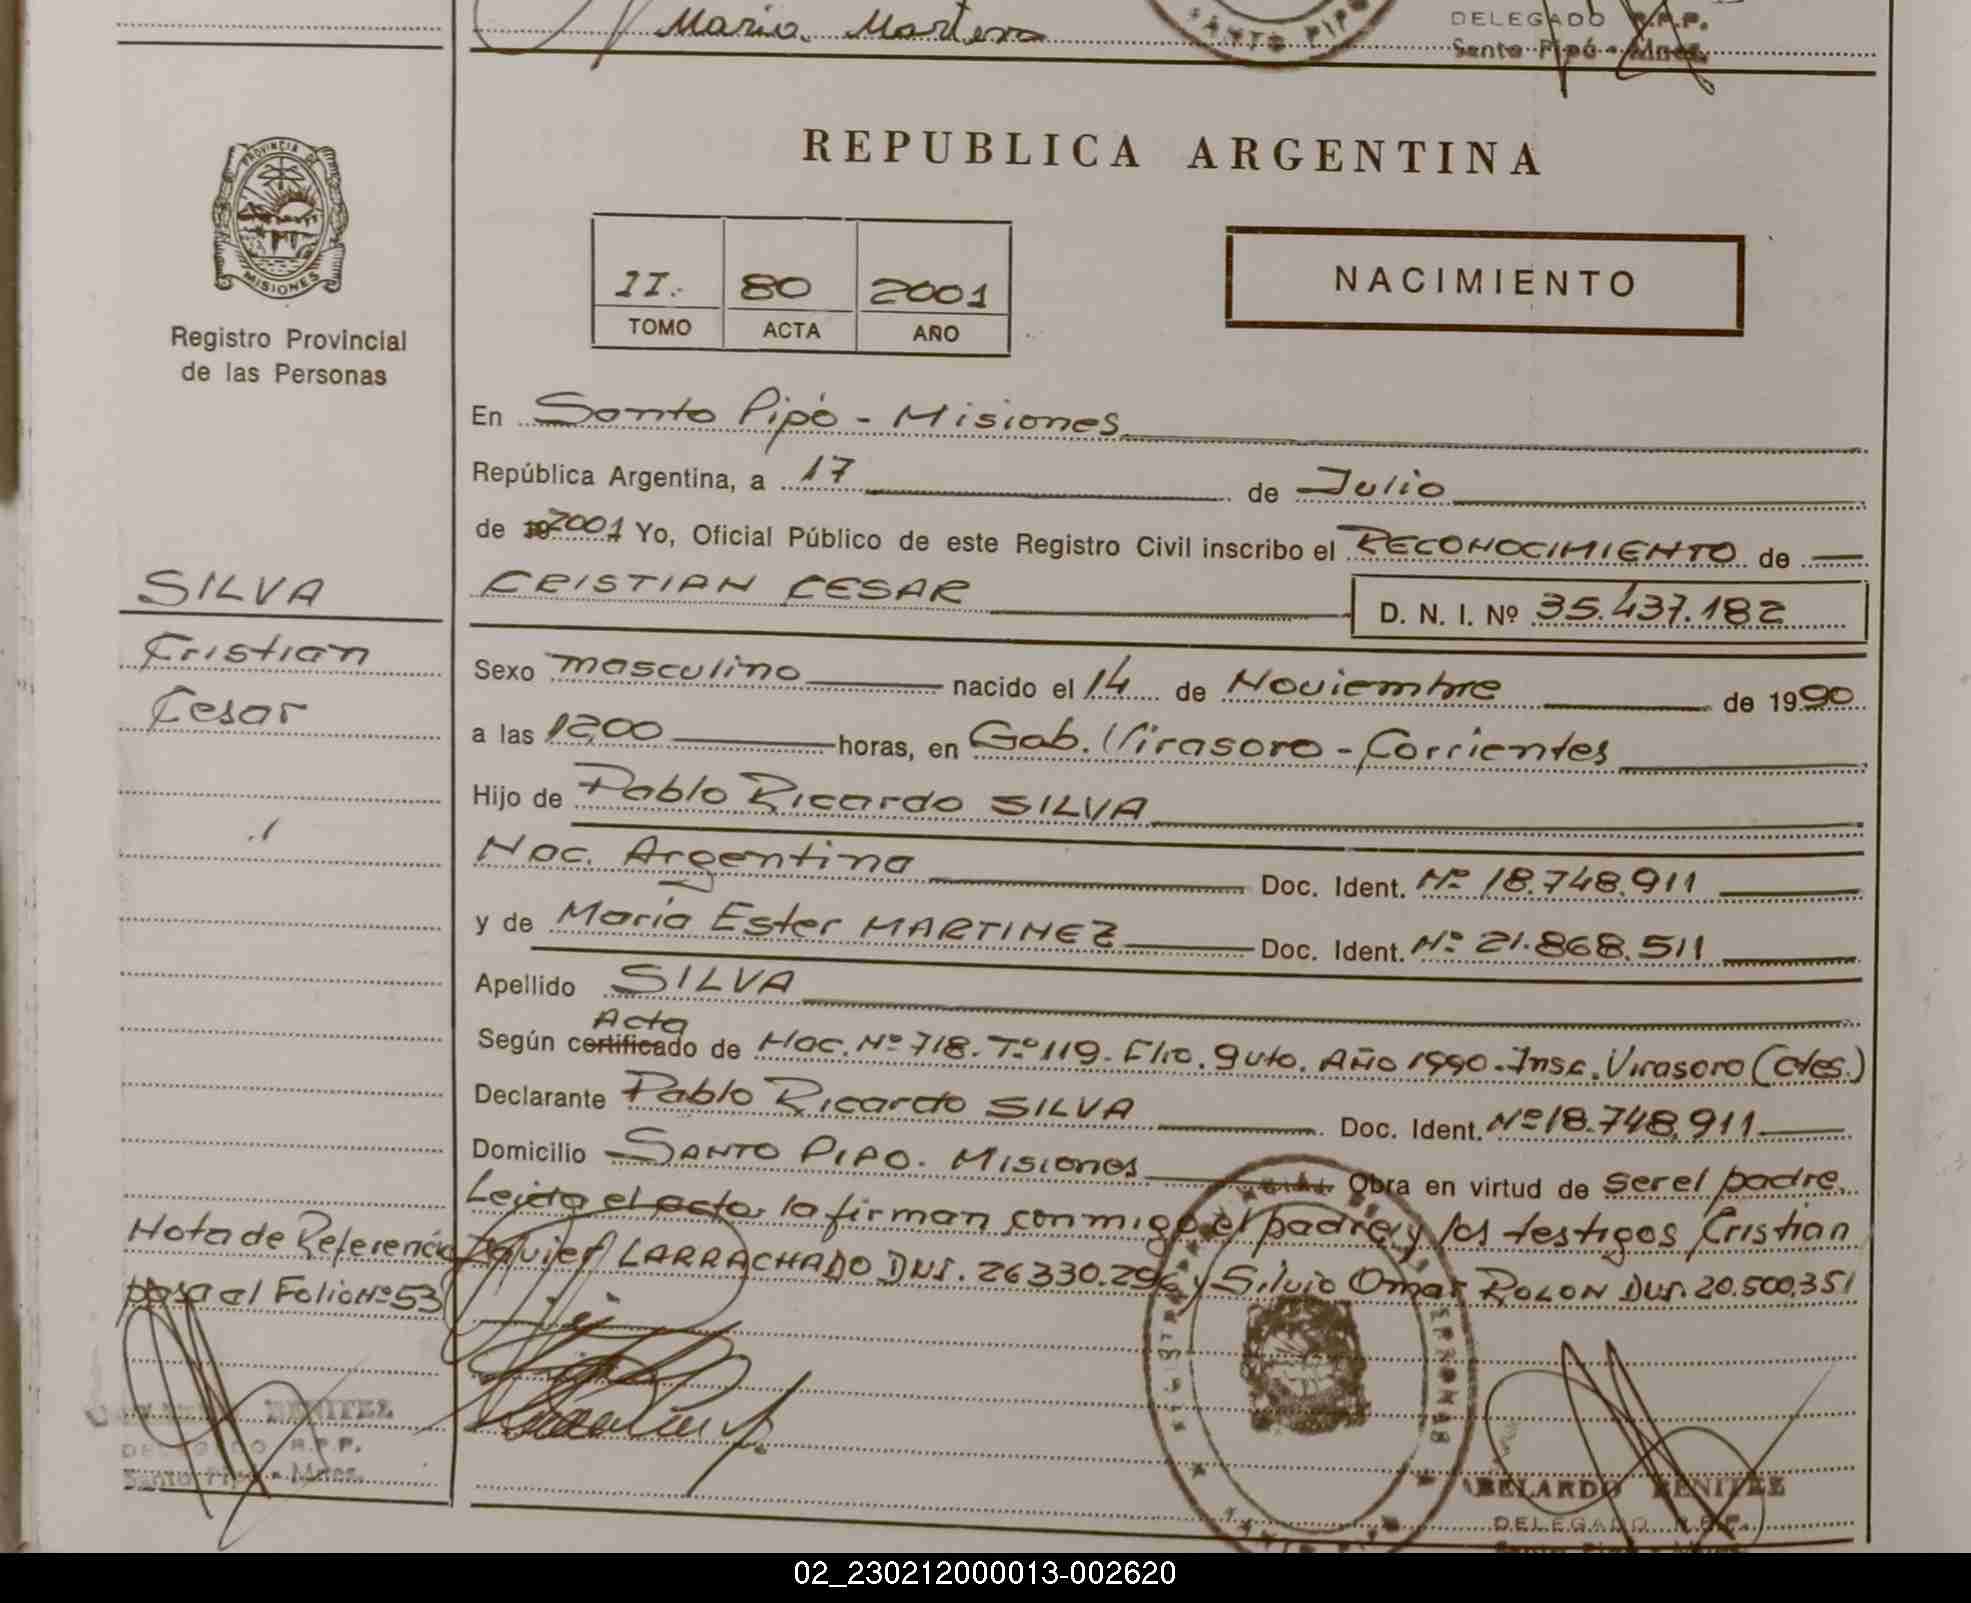 Maria Martena
SANTO PIPO
DELEGADO R.P.P.
Santo Pipó - Mnes.
PROVINCIA DE
MISIONES
Registro Provincial
de las Personas
REPUBLICA ARGENTINA
II.- 80 2001
TOMO ACTA AÑO
NACIMIENTO
En Santo Pipó - Misiones
República Argentina, a 17 de Julio
de 19 2001 Yo, Oficial Público de este Registro Civil inscribo el RECONOCIMIENTO de
CRISTIAN CESAR D. N. I. Nº 35.437.182
SILVA
Cristian
Cesar
Sexo masculino nacido el 14 de Noviembre de 1990
a las 12,00 horas, en Gob. Virasoro - Corrientes
Hijo de Pablo Ricardo SILVA
Nac. Argentina Doc. Ident. Nº 18.748.911
y de María Ester MARTINEZ Doc. Ident. Nº 21.868.511
Apellido SILVA
Acta
Según certificado de Nac. Nº 718. Tº 119. Flio. 9uto. Año 1990. Insc. Virasoro (Ctes.)
Declarante Pablo Ricardo SILVA Doc. Ident. Nº 18.748.911
Domicilio SANTO PIPO. Misiones Obra en virtud de ser el padre.
Leida el acta, la firman conmigo el padre y los testigos Cristian
Javier LARRACHADO DNI. 26330.296 y Silvio Omar ROLON DNI. 20.500.351
Nota de Referencia
pasa al Folio Nº 53
BENITEZ
DELEGADO R.P.P.
Santo Pipó - Mnes.
ABELARDO BENITEZ
DELEGADO R.P.P.
02_230212000013-002620